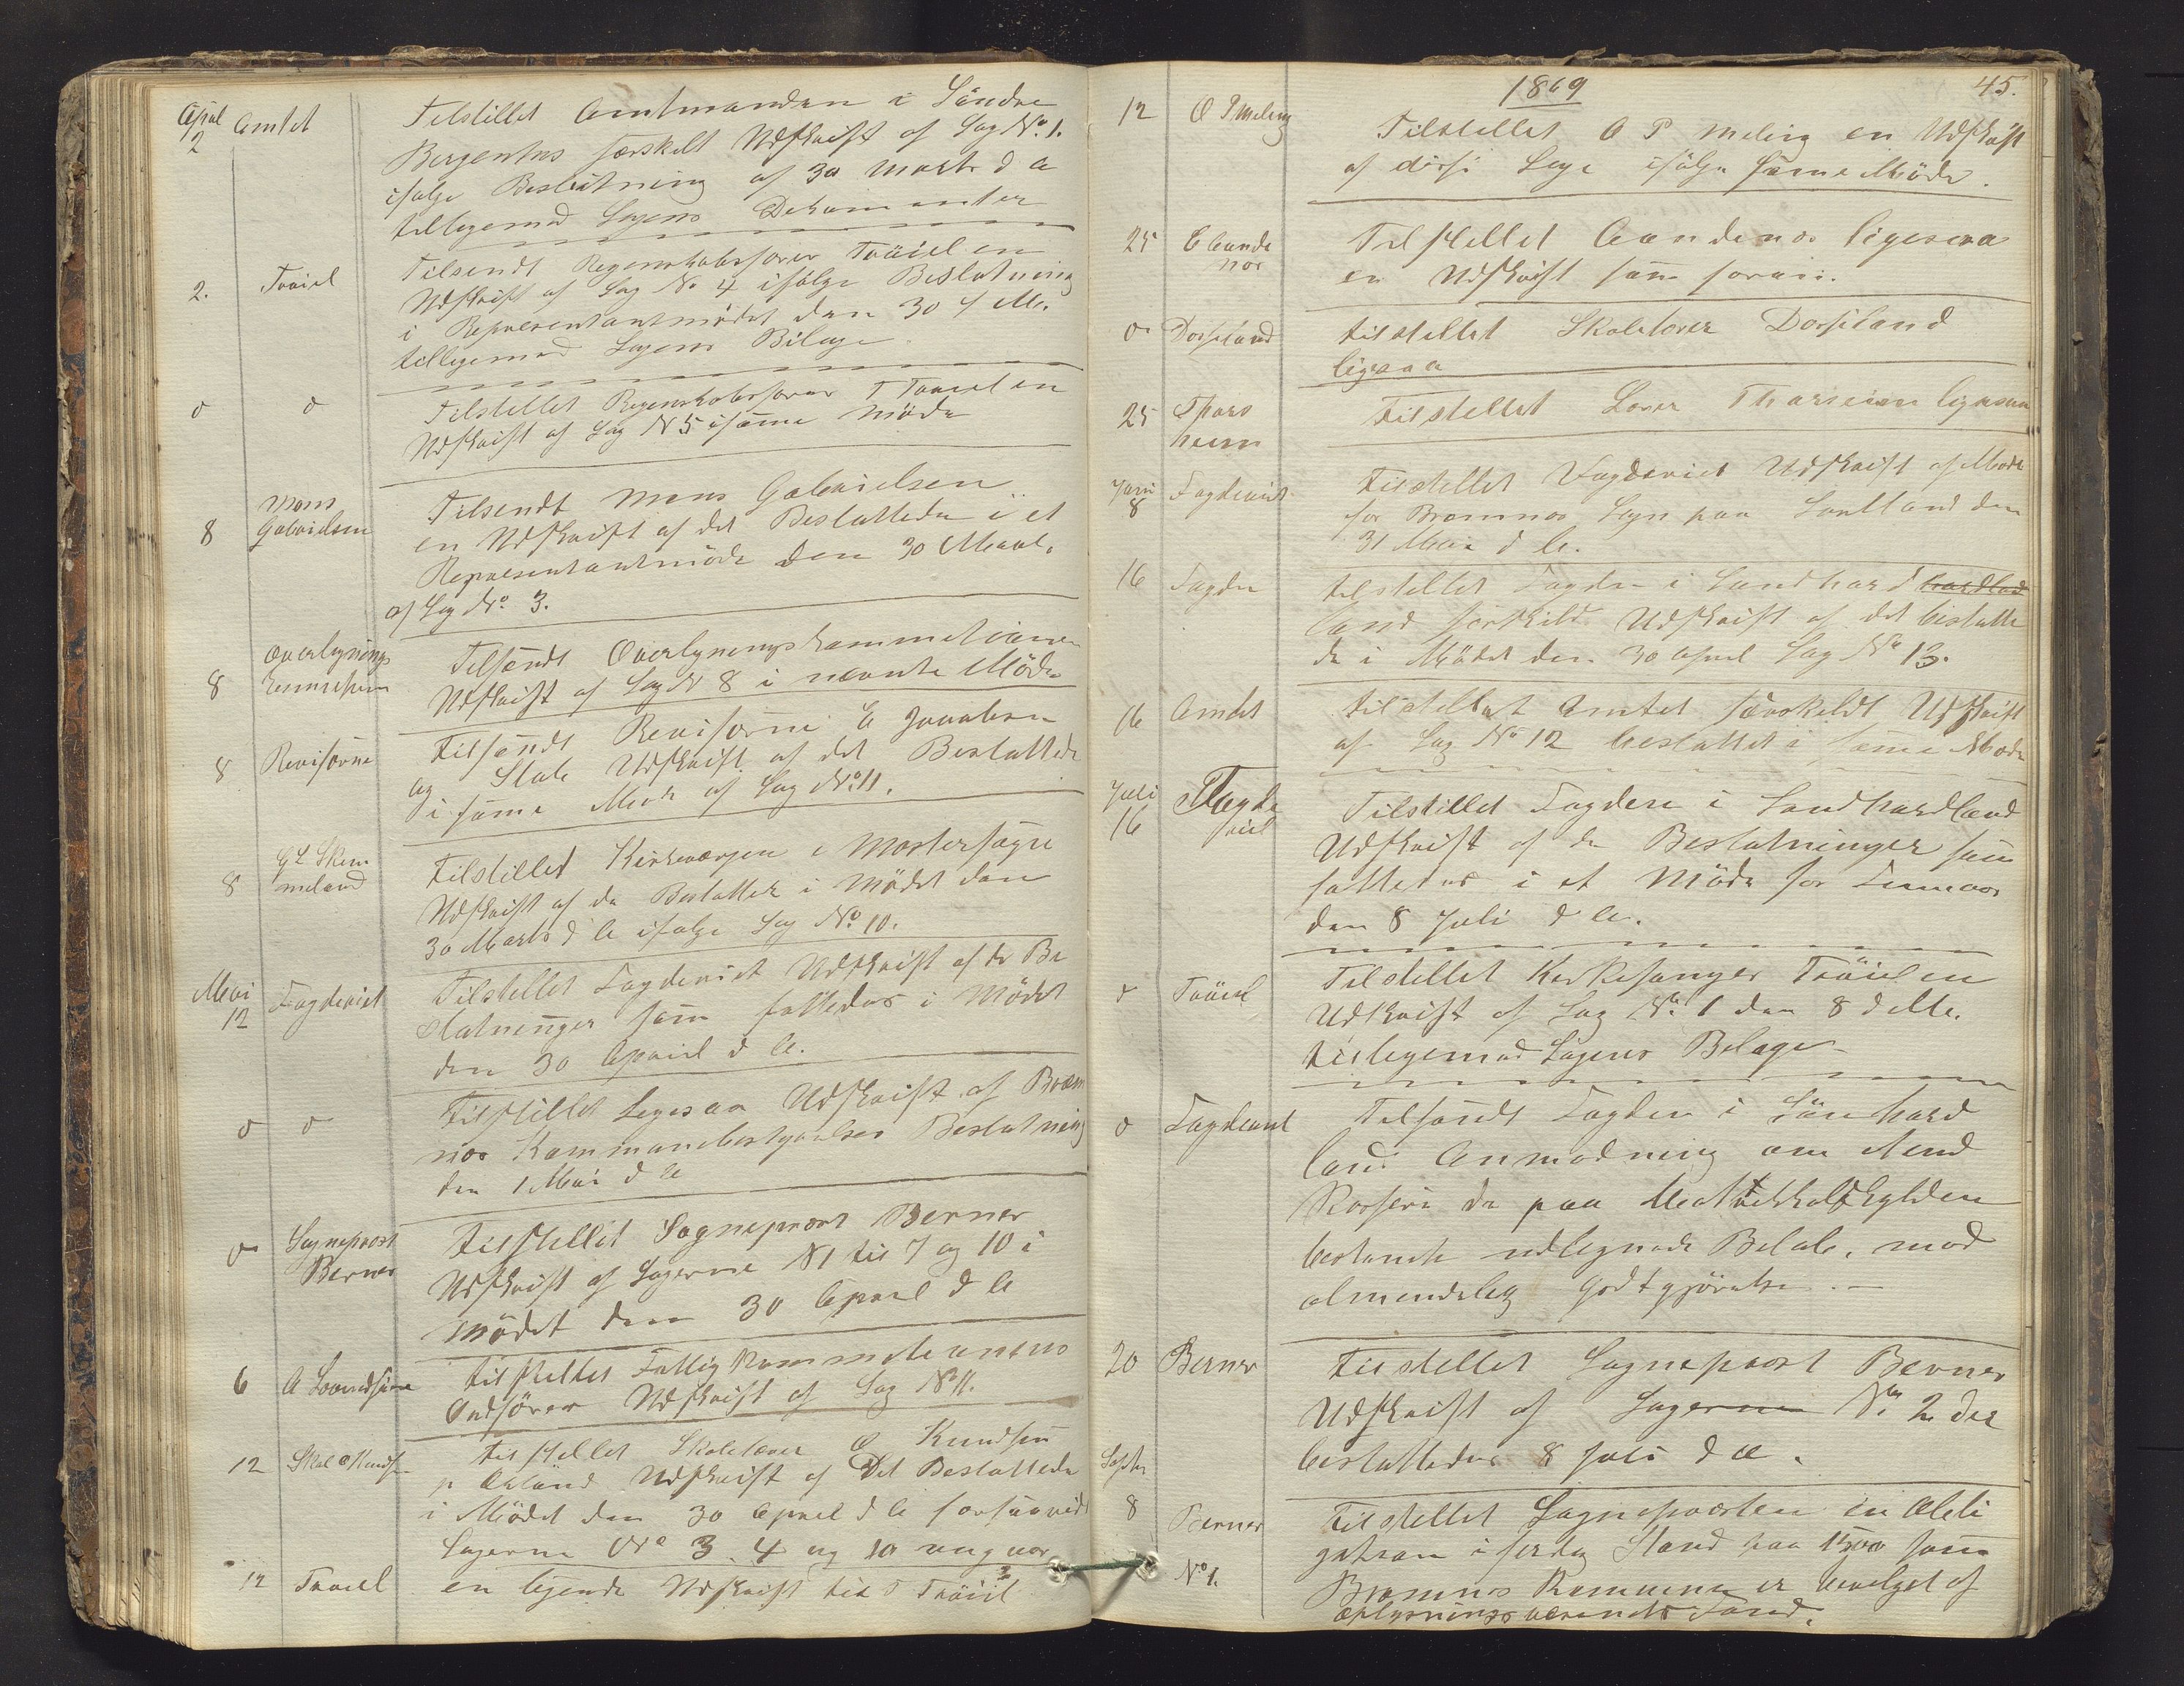 April
2 Amtet
Tilstillet Amtmanden i Søndre
Bergenhus særskilt Udskrift af Sag No. 1.
ifølge Beslutning af 30 Marts d A
tilligemed Sagens Dokumenter
2. Tvæiel
Tilsendt Regnskabsfører Tvæiel en
Udskrift af Sag No 4 ifølge Beslutning
i Representantmødet den 30 f M.
tilligemed Sagens Bilage.
d d
Tilstillet Regnskabsfører T Tvæiel en
Udskrift af Sag N 5 i samme Møde
8 Mons
Gabrielsen
Tilsendt Mons Gabrielsen
en Udskrift af det Besluttede i et
Representantmøde den 30 Marts.
af Sag No. 3.
8 Overlignings
Tilsendt Overligningskommetionen
Udskrift af Sag N 8 i nævnte Møde
8 Revisorne
Tilsendt Revisorne E Jacobsen
og Stab Udskrift af det Besluttede
i samme Møde af Sag No 11.
8
Tilstillet Kirkeværgen i Mostersogn
Udskrift af de Beslutter i Mødet den
30 Marts d A ifølge Sag No. 10.
Mai
12 Fogderiet
Tilstillet Fogderiet Udskrift af de Be
slutninger som fattedes i Mødet
den 30 April d A.
d d
Tilstillet Ligesaa Udskrift af Bræm
nes Kommunebestyrelses Beslutning
den 1 Mai d A
d Sogneprest
Berner
Tilstillet Sogneprest Berner
Udskrift af Sagerne N 1 til 7 og 10 i
Mødet den 30 April d A
6
Tilstillet Fattigkommisionens
Ordfører Udskrift af Sag No 11.
12 Skol O Knudsen
Tilstillet Skolelærer O Knudsen
p Økland Udskrift af Det Besluttede
i Mødet den 30 April d A forsaavidt
Sagerne No 3 4 og 10 angaar
12 Tvæiel
en ligende Udskrift til T Tvæiel
1869
45.
12 O P Meling
Tilstellet O P Meling en Udskrift
af disse Sage ifølge samme Møde.
25
Tilstellet Aandenes ligesaa
en Udskrift som foran.
d Dorfeland
Tilstellet Skolelærer Dorfeland
ligesaa
25 Thors
heim
Tilstellet Lærer Thorsheim ligesaa
Juni
8 Fogderiet
Tilstellet Fogderiet Udskrift af Møde
for Bremnes Sogn paa Sortland den
31 Mai d A.
16 Fogden
Tilstellet Fogden i Sundhard
land særskild Udskrift af det beslutte
de i Mødet den 30 April Sag No 13.
16 Amtet
Tilstellet Amtet særskildt Udskrift
af Sag No 12 besluttet i samme Møde
Juli
16 Fogde
riet
Tilstillet Fogden i Sundhordland
Udskrift af de Beslutninger som
fattedes i et Møde for Finnaas
den 8 Juli d A.
d Tvæiel
Tilstellet Kirkesanger Tvæiel en
Udskrift af Sag No 1 den 8 d M.
tilligemed Sagens Bilage
d Fogderiet
Tilsendt Fogden i Sønhord
land Anmodning om at ind
kassere de paa Matrikkelskylden
udlignede Beløb, mod
almindelig Godtgjørelse. —
20 Berner
Tilstellet Sogneprest Berner
Udskrift af Sagerne No. 2 der
besluttedes 8 Juli d A.
Septr
8 Berner
No 1.
Tilstellet Sognepresten en Obli
gation i Stand paa 1500 som
Bremnes Kommune er bevilget af
Oplysningsvæsenets Fond.